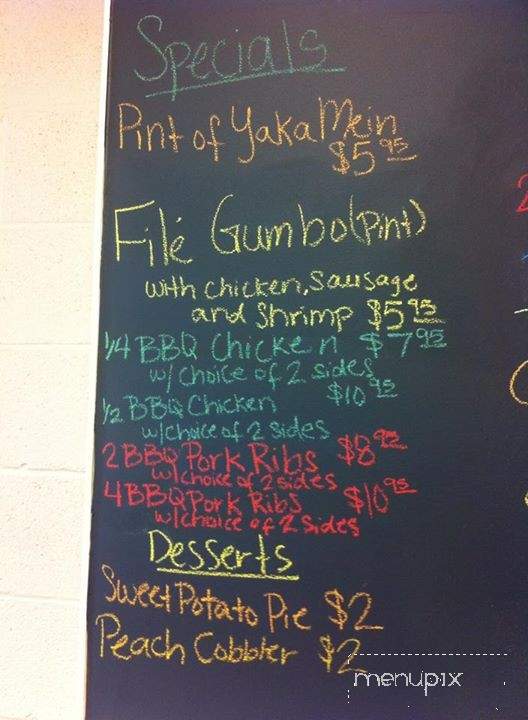 Specials
Pint of Yaka Mein
$5.95
Filé Gumbo (Pint)
with chicken, Sausage
and Shrimp $5.95
1/4 BBQ Chicken $7.95
w/choice of 2 sides
1/2 BBQ Chicken $10.95
w/choice of 2 sides
2 BBQ Pork Ribs $8.95
w/choice of 2 sides
4 BBQ Pork Ribs $10.95
w/choice of 2 sides
Desserts
Sweet Potato Pie $2
Peach Cobbler $2
menupix